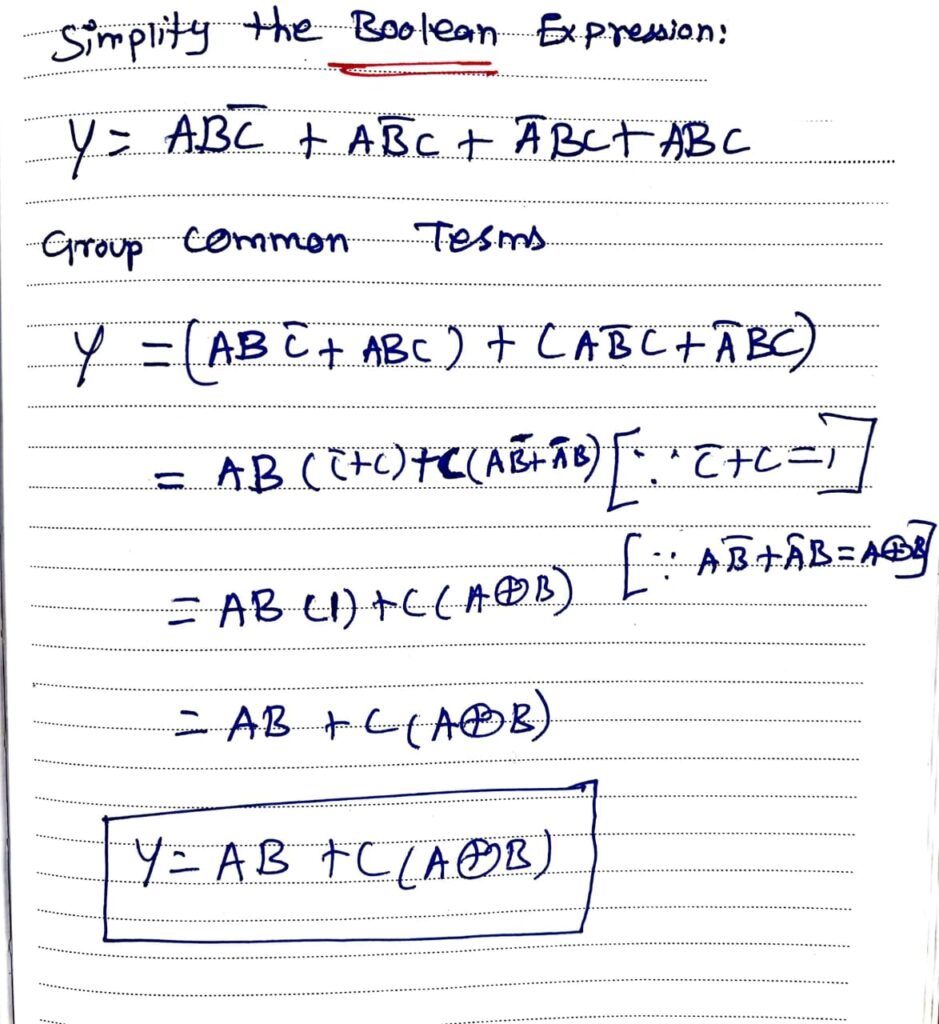 Simplify the Boolean Expression:
Y = ABC̅ + AB̅C + A̅BC + ABC
Group common Tesms
Y = (ABC̅ + ABC) + (AB̅C + A̅BC)
= AB (C̅+C) + C(AB̅+A̅B) [∵ C̅+C=1]
[∵ AB̅+A̅B = A⊕B]
= AB (1) + C(A⊕B)
= AB + C(A⊕B)
Y = AB + C(A⊕B)